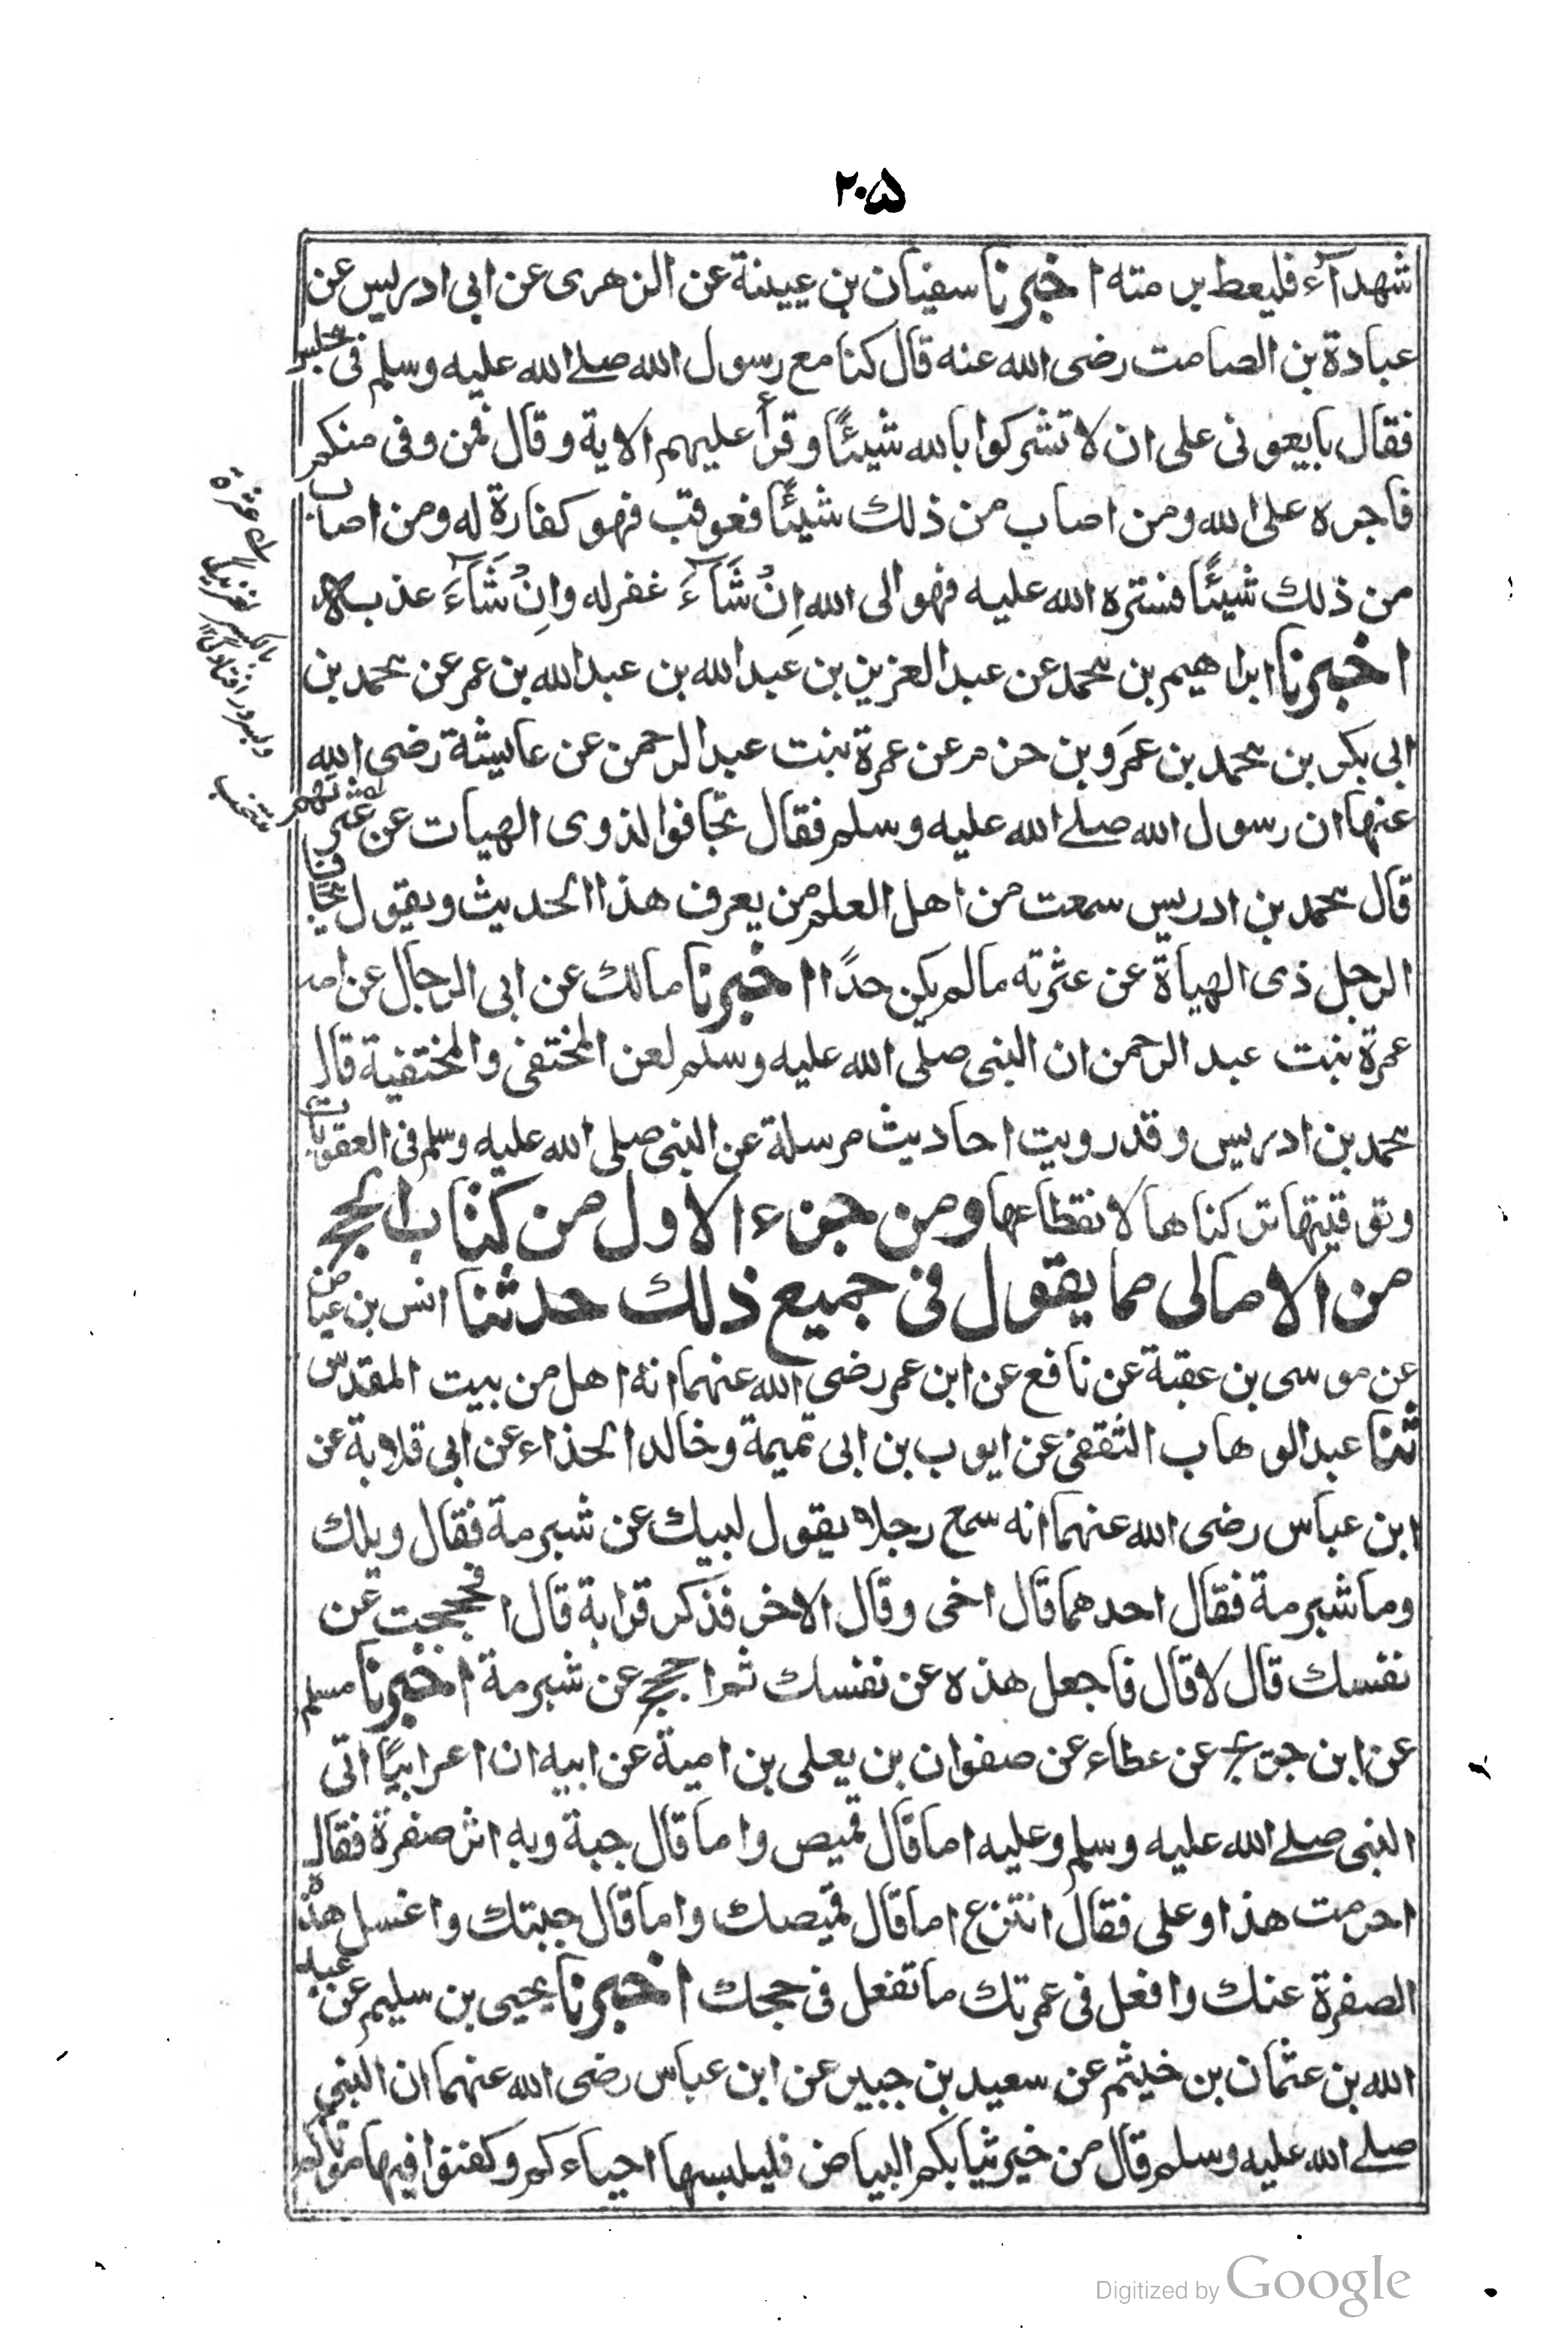 ٢٠٥
شهدآء فليعط برمته اخبرنا سفيان بن عيينة عن الزهرى عن ابى ادريس عن
عبادة بن الصامت رضى الله عنه قال كنا مع رسول الله صلے الله عليه وسلم فى مجلس
فقال بايعونى على ان لا تشركوا بالله شيئًا وقرأ عليهم الاية وقال فمن وفى منكم
فاجره على الله ومن اصاب من ذلك شيئًا فعوقب فهو كفارة له ومن اصاب
من ذلك شيئًا فستره الله عليه فهو الى الله اِنْ شَآءَ غفر له واِنْ شَآءَ عذبه
اخبرنا ابراهيم بن محمد عن عبد العزيز بن عبد الله بن عبد الله بن عمر عن محمد بن
ابى بكر بن محمد بن عمَرو بن حزم عن عمرة بنت عبد الرحمن عن عايشة رضى الله
عنها ان رسول الله صلے الله عليه وسلم فقال تجافوا لذوى الهيات عن عثراتهم
قال محمد بن ادريس سمعت من اهل العلم من يعرف هذا الحديث ويقول يجافا
الرجل ذى الهياة عن عثرته مالم يكن حدًا اخبرنا مالك عن ابى الرجال عن امه
عمرة بنت عبد الرحمن ان النبى صلى الله عليه وسلم لعن المختفى والمختفية قال
محمد بن ادريس وقد رويت احاديث مرسلة عن النبى صلى الله عليه وسلم فى العقوبات
وتوقيتها تركناها لانقطاعها ومن جزء الاول من كتاب الحج
من الامالى مما يقول فى جميع ذلك حدثنا انس بن عياض
عن موسى بن عقبة عن نافع عن ابن عمر رضى الله عنهما انه اهل من بيت المقدس
ثنا عبد الوهاب الثقفى عن ايوب بن ابى تميمة وخالد الحذاء عن ابى قلابة عن
ابن عباس رضى الله عنهما انه سمع رجلا يقول لبيك عن شبرمة فقال ويلك
وما شبرمة فقال احدهما قال اخى وقال الاخر فذكر قرابة قال افحججت عن
نفسك قال لا قال فاجعل هذه عن نفسك ثم احجج عن شبرمة اخبرنا مسلم
عن ابن جريج عن عطاء عن صفوان بن يعلى بن امية عن ابيه ان اعرابيًا اتى
النبى صلے الله عليه وسلم وعليه اما قال قميص واما قال جبة وبه اثر صفرة فقال
احرمت هذا وعلى فقال انتزع اما قال قميصك واما قال جبتك واغسل هذه
الصفرة عنك وافعل فى عمرتك ما تفعل فى حجك اخبرنا يحيى بن سليم عن عبد
الله بن عثمان بن خيثم عن سعيد بن جبير عن ابن عباس رضى الله عنهما ان النبى
صلے الله عليه وسلم قال من خير ثيابكم البياض فليلبسها احياءكم وكفنوا فيها موتاكم
Digitized by Google